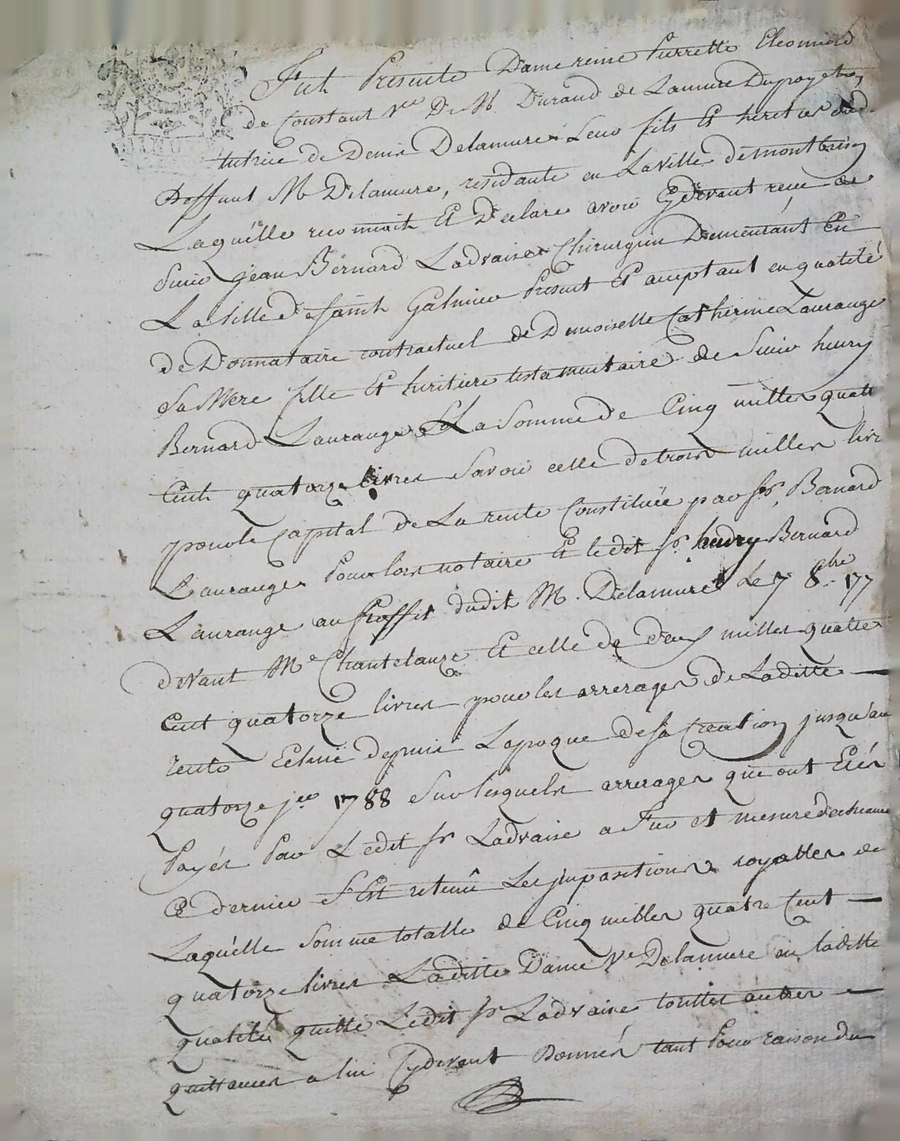 Fut Presente Dame reine Pierrette Eleonord
de Constant Ve De M. Durand de Lamure Dupoyet,
tutrice de Denis Delamure Leur fils Et heritier dud
Deffunt M. Delamure, residante en La ville de montbrison
Laquelle reconnoit Et Declare avoir Cydevant reçu de
Sieur jean Bernard Ladvaise Chirurgien Demeurant En
La ville de saint Galmier Present Et acceptant en qualité
de Donnataire contractuel de Demoiselle Catherine Laurange
Sa Mere fille Et heritiere testamentaire de Sieur henry
Bernard Laurange La Somme de Cinq milles quatre
Cent quatorze livres Savoir celle de trois milles livr
pour le Capital de La rente Constituée par sr. Bernard
Laurange Pour lors notaire Et ledit sr. henry Bernard
Laurange au Proffit dudit M. Delamure le 7 8bre 177
devant Me Chantelauze Et celle de deux milles quatre
Cent quatorze livres pour les arrerages de Laditte
rente Echus depuis L'epoque de sa Creation jusqu'au
quatorze jer 1788 Sur lesquels arrerages qui ont Etés
Payés Par Ledit sr. Ladvaise a Fur et mesure
Ce dernier s'Est retenu Les jmpositions royalles de
Laquelle Somme totalle de Cinq milles quatre Cent
quatorze livres Laditte Dame Ve Delamure en laditte
qualité quitte Ledit sr. Ladvaise touttes autres
quittances a lui Cydevant Donnés tant Pour raison du